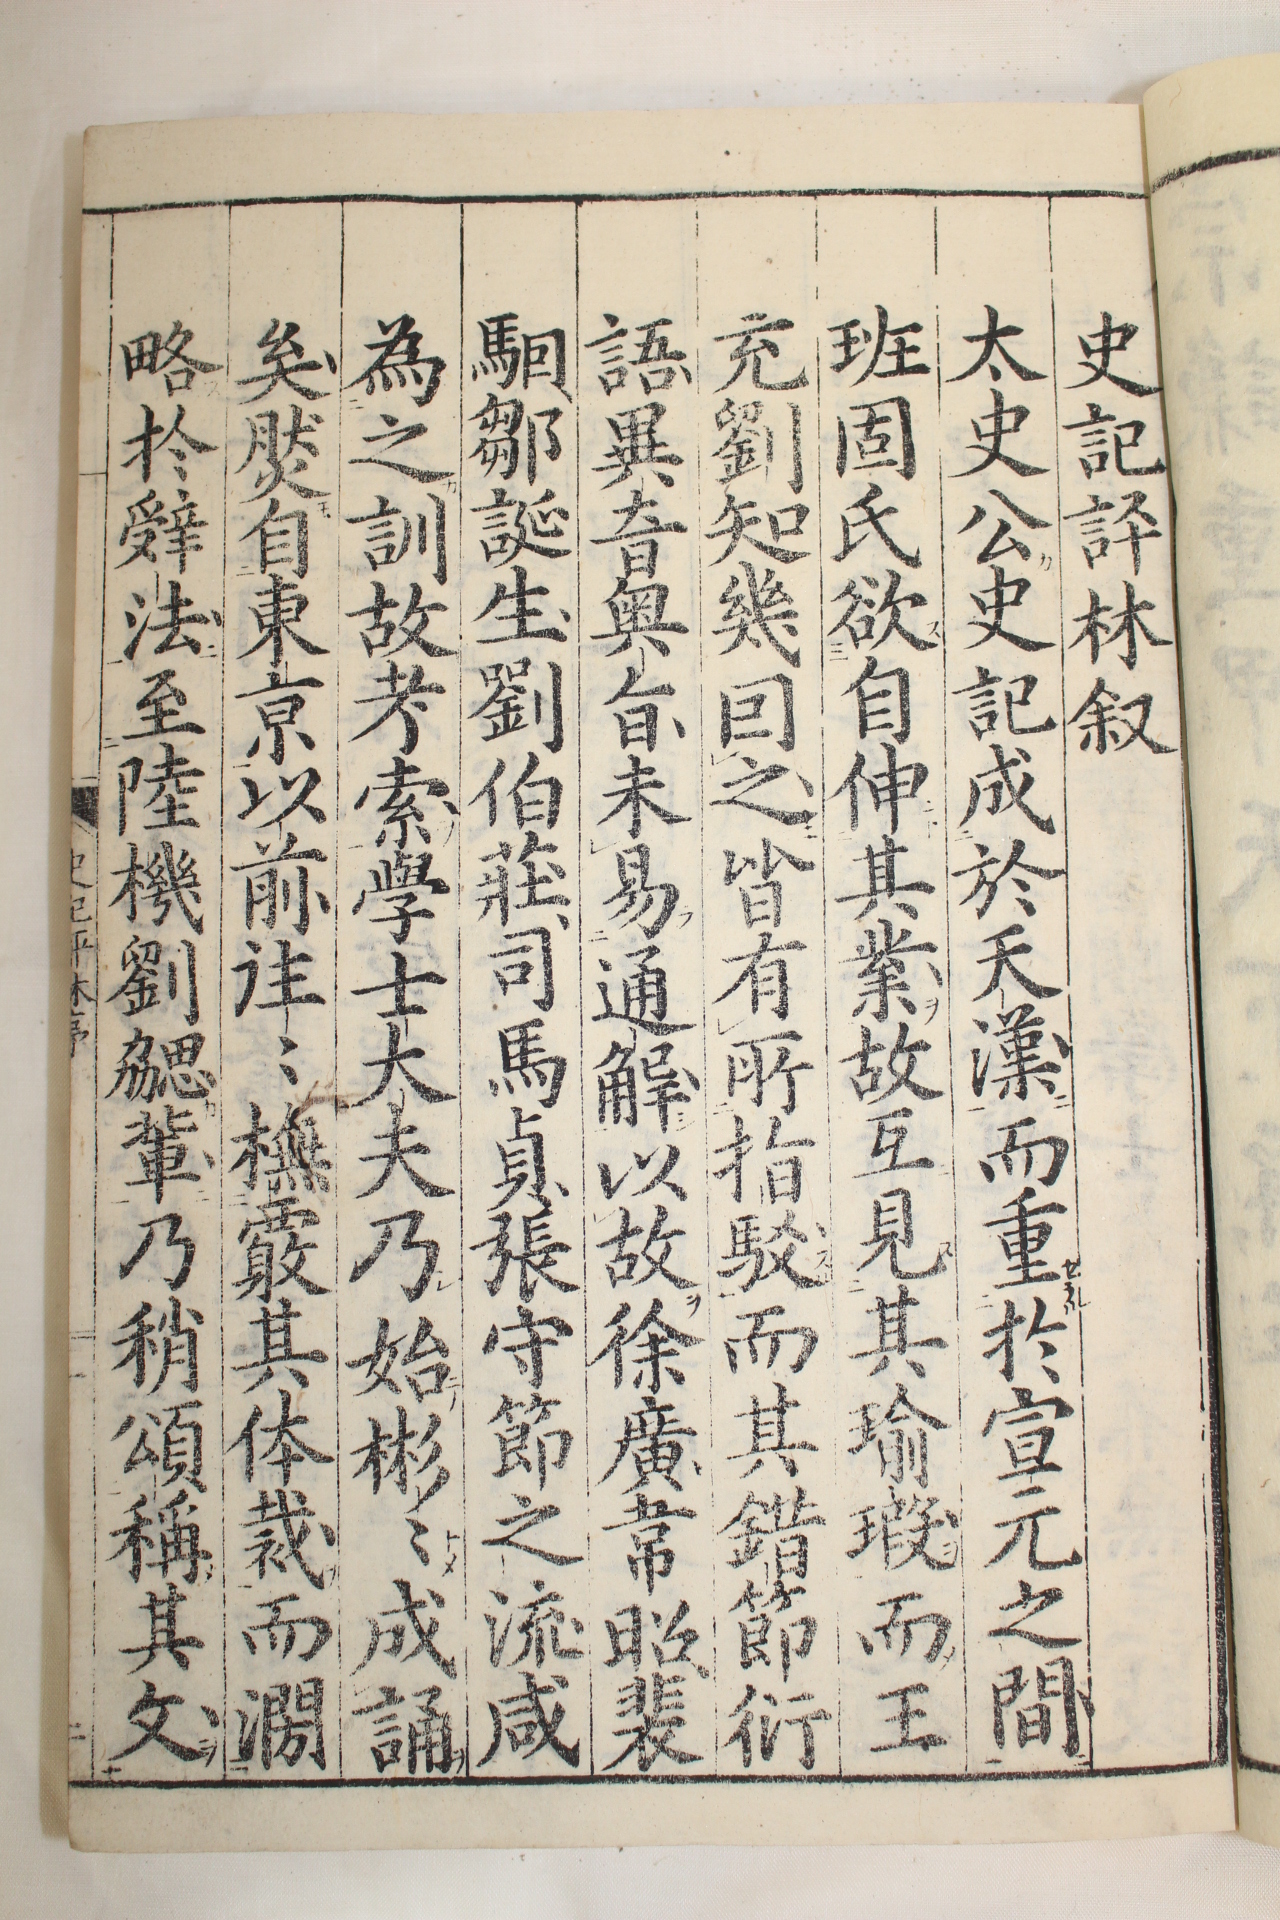 史記評林叙
太史公史記成於天漢而重於宣元之間
班固氏欲自伸其業故互見其瑜瑕而王
充劉知幾回之皆有所指駁而其錯節衍
語異音奥旨未易通解以故徐廣韋昭裴
駰鄒誕生劉伯莊司馬貞張守節之流咸
為之訓故考索學士大夫乃始彬〻成誦
矣然自東京以前往〻橅覈其体裁而濶
略於辤法至陸機劉勰輩乃稍頌稱其文
史記評林序